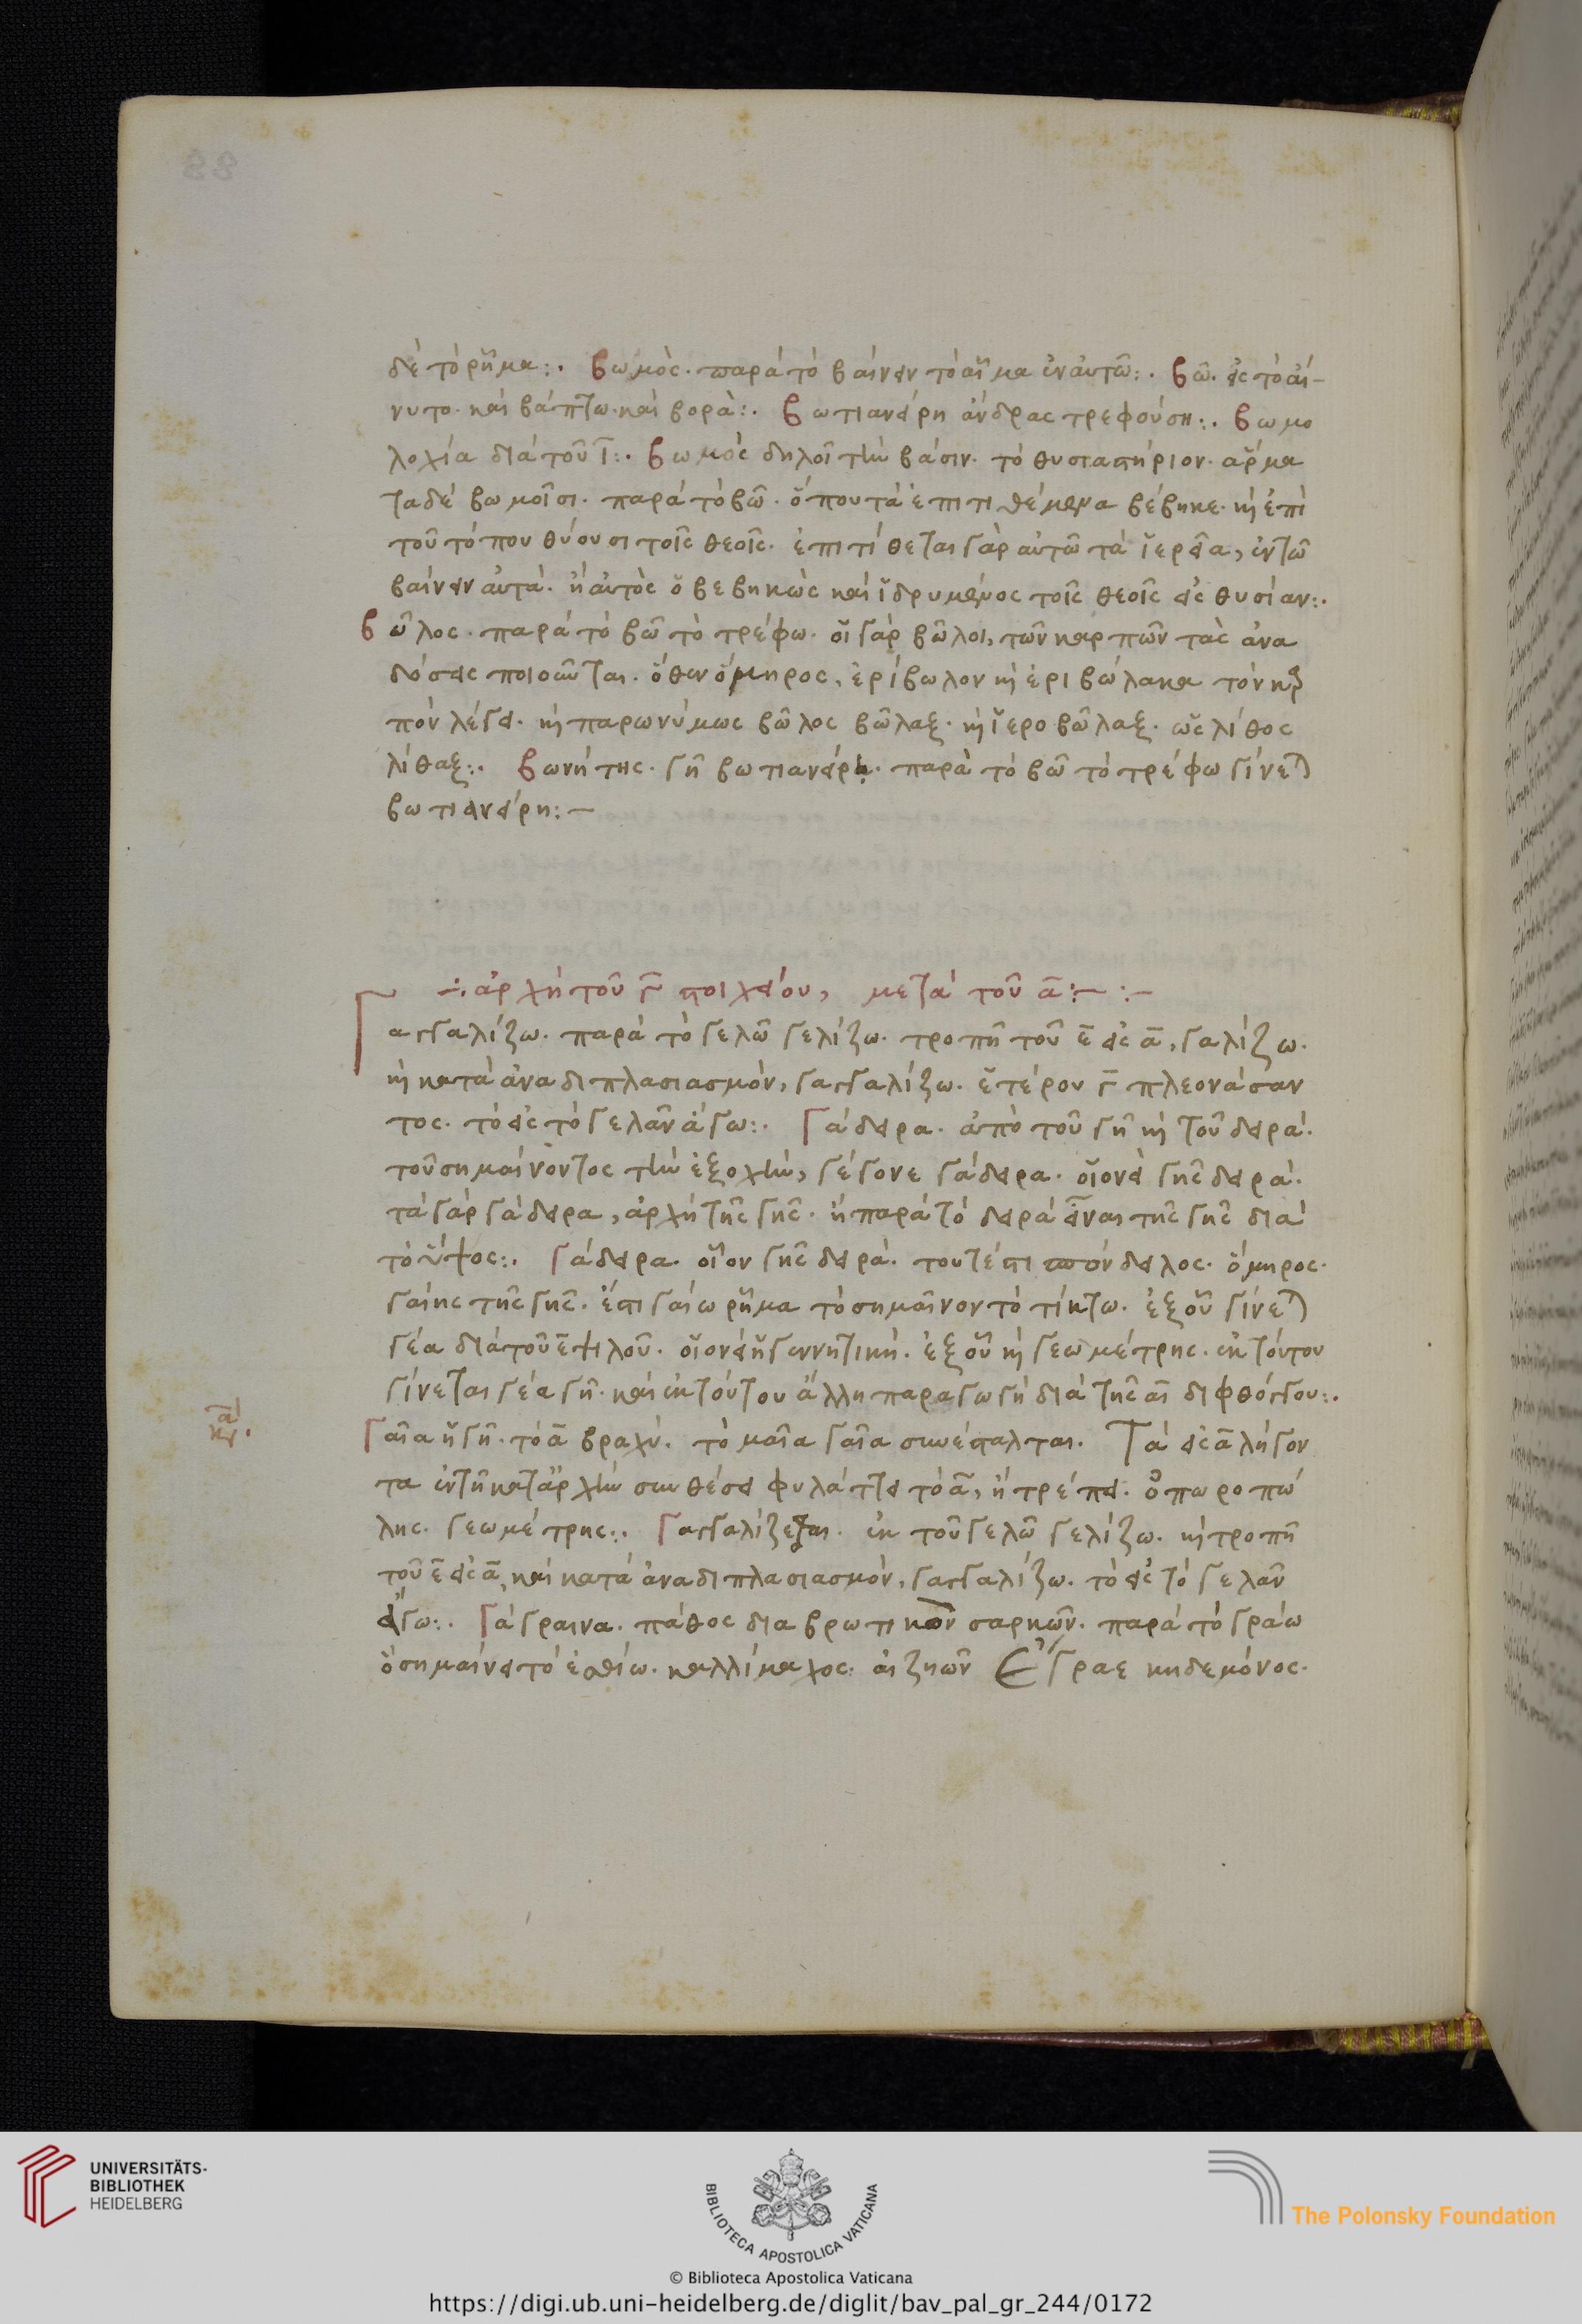 δὲ τὸ ρῆμα:. βωμὸς. παρὰ τὸ βαίνειν τὸ αἷμα ἐν αὐτῶ:. βῶ. εἰς τὸ αἴ-
νυτο. καὶ βάπτω. καὶ βορὰ:. βωτιανείρη ἄνδρας τρεφούση:. βωμο
λοχία διὰ τοῦ ῑ:. βωμὸς δηλοῖ τὴν βάσιν. τὸ θυσιαστήριον. ἅρμα
τα δὲ βωμοῖσι. παρὰ τὸ βῶ. ὅπου τὰ ἐπιτιθέμενα βέβηκε. κὴ ἐπὶ
τοῦ τόπου θύουσι τοῖς θεοῖς. ἐπιτίθεται γὰρ αὐτῶ τὰ ἱερεῖα, ἐν τῶ
βαίνειν αὐτά. ἢ αὐτὸς ὁ βεβηκὼς καὶ ἱδρυμένος τοῖς θεοῖς εἰς θυσίαν:.
βῶλος. παρὰ τὸ βῶ τὸ τρέφω. οἱ γὰρ βῶλοι, τῶν καρπῶν τὰς ἀνα
δόσεις ποιοῦνται. ὅθεν ὅμηρος, ἐρίβωλον κὴ ἐριβώλακα τὸν κῆ
πον λέγει. κὴ παρωνύμως βῶλος βῶλαξ. κὴ ἱεροβῶλαξ. ὡς λίθος
λίθαξ:. βωνήτης. γῆ βωτιανείρη. παρὰ τὸ βῶ τὸ τρέφω γίνεται
βωτιανείρη:-
∴ ἀρχὴ τοῦ γ̄ στοιχείου, μετὰ τοῦ ᾱ:- :-
Γαγγαλίζω. παρὰ τὸ γελῶ γελίζω. τροπῆ τοῦ ε̄ εἰς ᾱ, γαλίζω.
κὴ κατὰ ἀναδιπλασιασμόν, γαγγαλίζω. ἑτέρου γ̄ πλεονάσαν
τος. τὸ εἰς τὸ γελᾶν ἄγω:. Γάδειρα. ἀπὸ τοῦ γῆ κὴ τοῦ δειρά.
τοῦ σημαίνοντος τὴν ἐξοχὴν, γέγονε γάδειρα. οἱονεὶ γῆς δειρά.
τὰ γὰρ γάδειρα, ἀρχὴ τῆς γῆς. ἢ παρὰ τὸ δειρὰ εἶναι τῆς γῆς διὰ
τὸ ὕψος:. Γάδειρα. οἷον γῆς δειρά. τουτέστι σπόνδειλος. ὅμηρος.
γαίης τῆς γῆς. ἔστι γαίω ρῆμα τὸ σημαῖνον τὸ τίκτω. ἐξ οὗ γίνεται
γέα διὰ τοῦ ε̄ ψιλοῦ. οἱονεὶ ἡ γεννητική. ἐξ οὗ κὴ γεωμέτρης. ἐκ τούτου
γίνεται γέα γῆ. καὶ ἐκ τούτου ἄλλη παραγωγὴ διὰ τῆς αῑ διφθόγγου:.
Γαῖα ἡ γῆ. τὸ ᾱ βραχύ. τὸ μαῖα γαῖα συνέσταλται. Τὰ εἰς ᾱ λήγον
τα ἐν τῆ κατ' ἀρχὴν συνθέσει φυλάττει τὸ ᾱ, ἢ τρέπει. ὀπωροπώ
λης. γεωμέτρης:. Γαγγαλίζεται. ἐκ τοῦ γελῶ γελίζω. κὴ τροπῆ
τοῦ ε̄ εἰς ᾱ, καὶ κατὰ ἀναδιπλασιασμόν, γαγγαλίζω. τὸ εἰς τὸ γελᾶν
ἄγω:. Γάγραινα. πάθος διαβρωτικὸν σαρκῶν. παρὰ τὸ γράω
ὃ σημαίνει τὸ ἐσθίω. καλλίμαχος. αἰζηῶν ἔγραε κηδεμόνος.
UNIVERSITÄTS-
BIBLIOTHEK
HEIDELBERG
BIBLIOTECA APOSTOLICA VATICANA
The Polonsky Foundation
© Biblioteca Apostolica Vaticana
https://digi.ub.uni-heidelberg.de/diglit/bav_pal_gr_244/0172